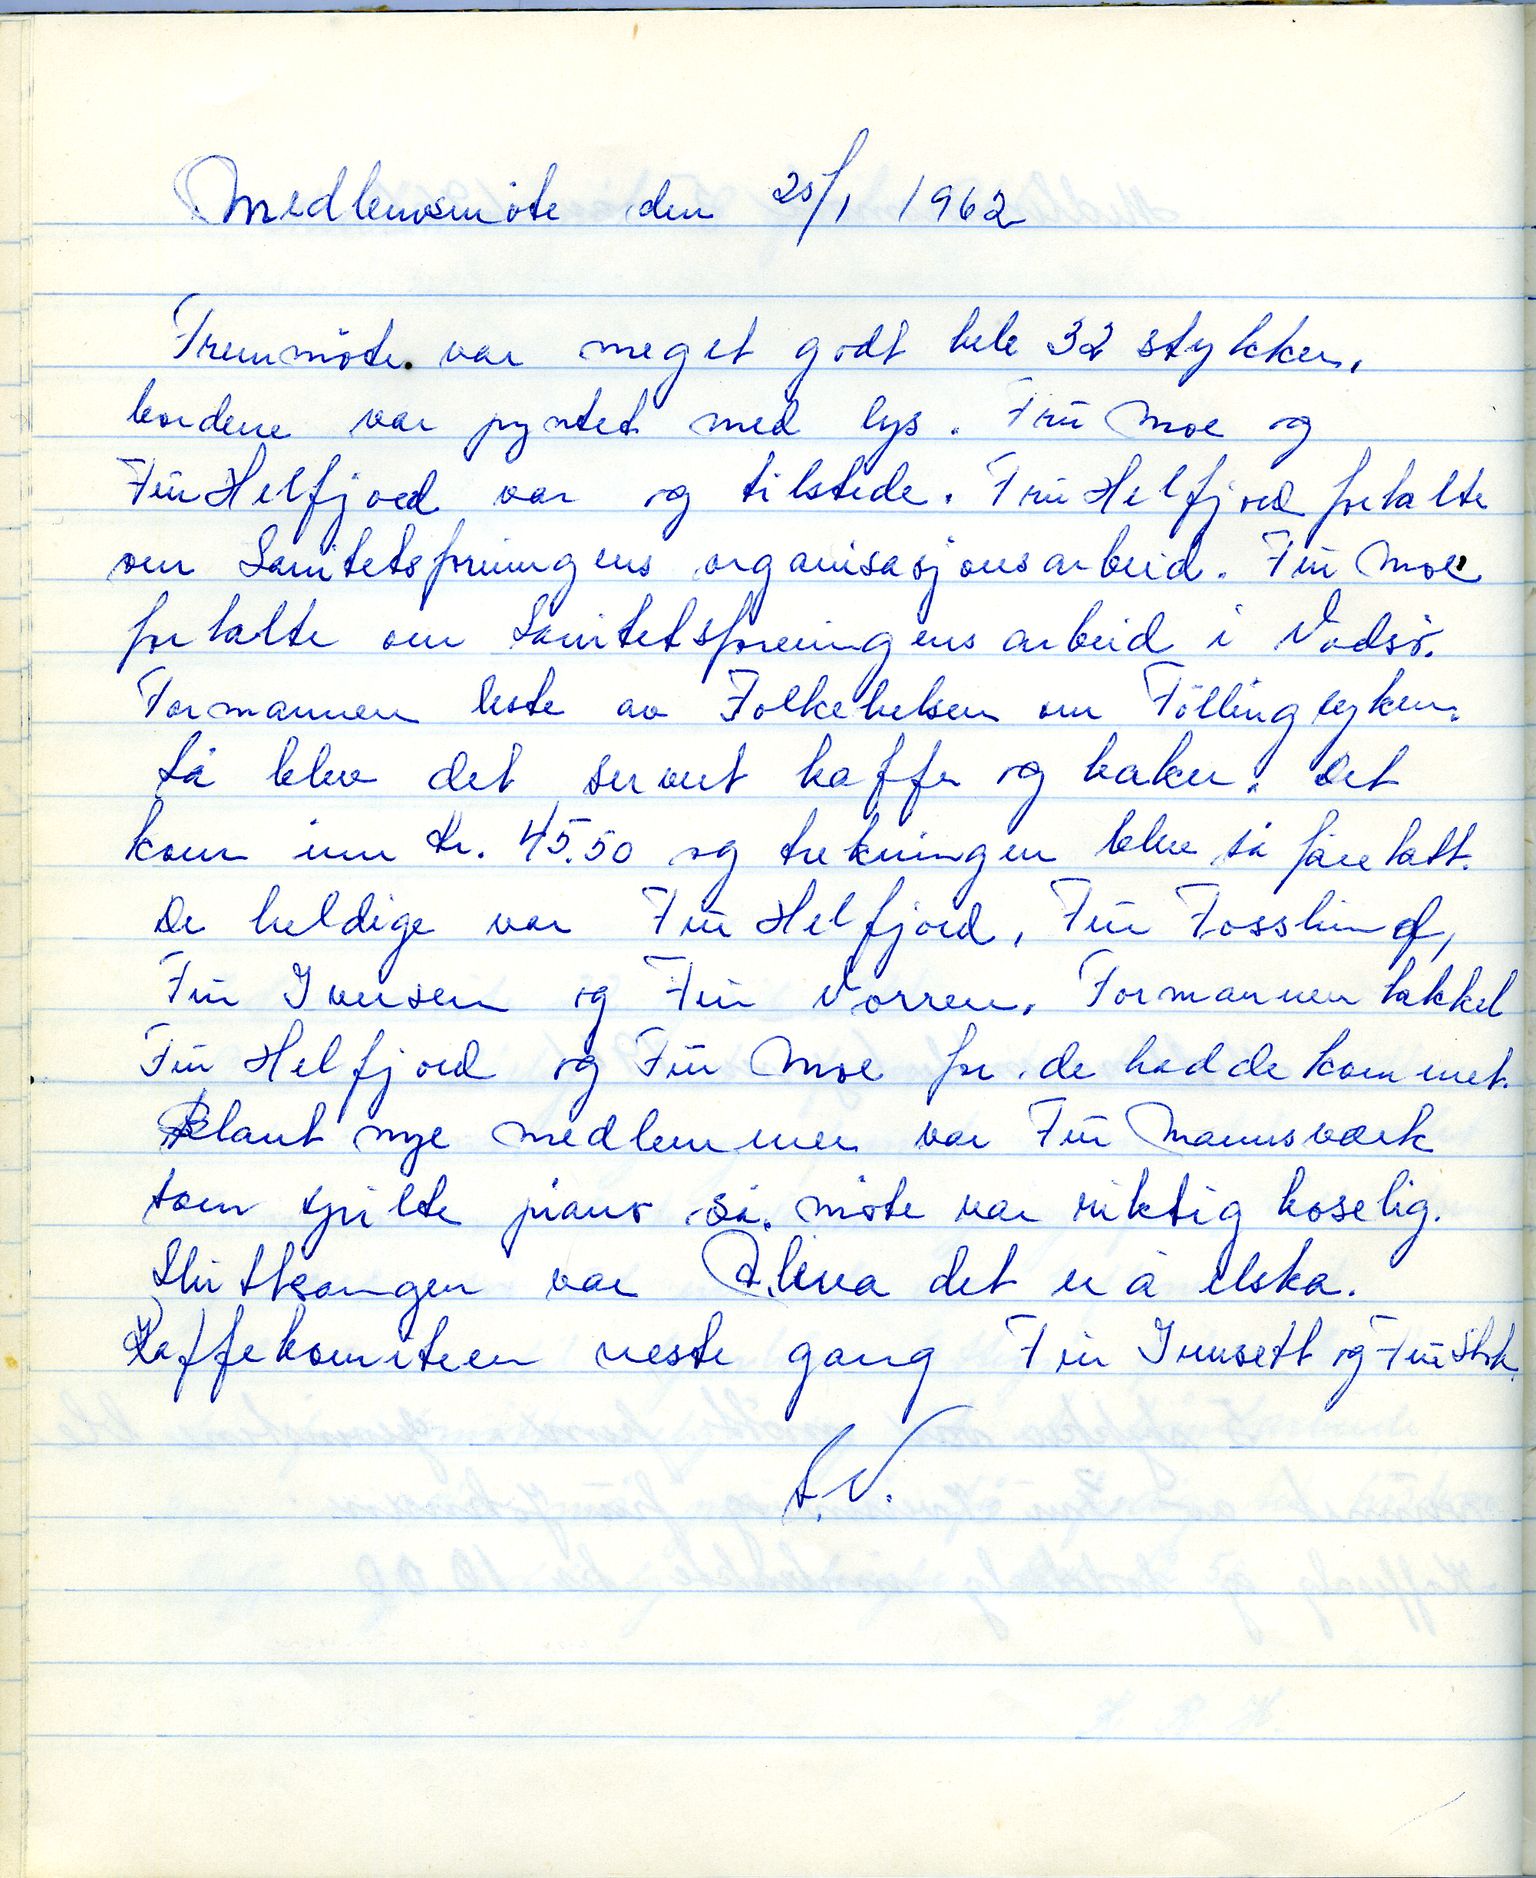 Medlemsmöte den 25/1 1962
Fremmöte var meget godt hele 32 stykker,
bordene var pyntet med lys. Frü Moe og
Frü Helfjord var og tilstede. Frü Helfjord fortalte
om Sanitetsforningens organisasjonsarbeid. Frü Moe
fortalte om Sanitetsforeningens arbeid i Vadsö.
Formannen leste av Folkehelsen om Föllingsyken.
Så blev det servert kaffe og kaker. Det
kom inn kr. 45.50 og trekningen blev så foretatt.
De heldige var Frü Helfjord, Frü Fosslund,
Frü Iversen og Frü Vorren. Formannen takket
Frü Helfjord og Frü Moe for de hadde kommet.
Blant nye medlemmer var Frü Mannsværk
som spilte piano så. möte var riktig koselig.
Slüttsangen var Aleina det er å elska.
Kaffekomiteen neste gang Frü Jensett og Frü
S.V.